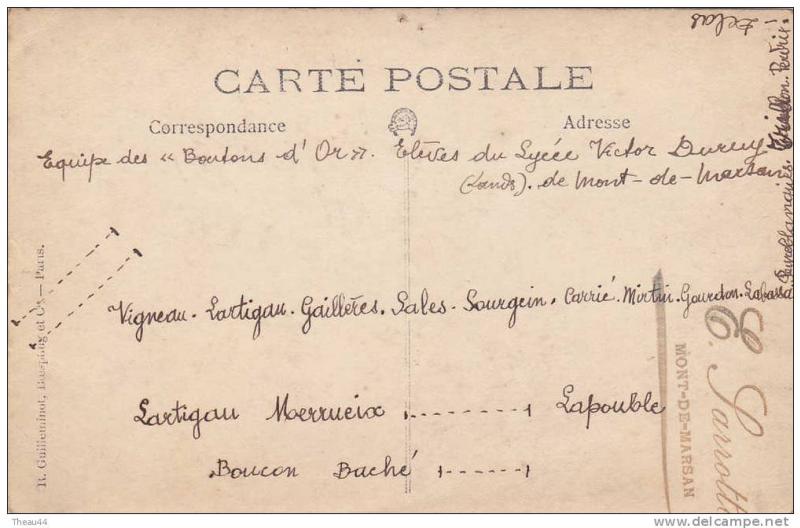 CARTE POSTALE
Correspondance
Adresse
Equipe des « Boutons d'Or ». Elèves du Lycée Victor Duruy
(Lands). de Mont-de-Marsan
Vigneau. Lartigau. Gaillères. Sales. Sourgein. Carrié. Mirtin. Gourdon.
Lartigau Merrueix Lapouble
Boucon Baché
Delas
R. Guilleminot, Bœspflug et Cie. — Paris.
MONT-DE-MARSAN
Theau44
delcampe.net